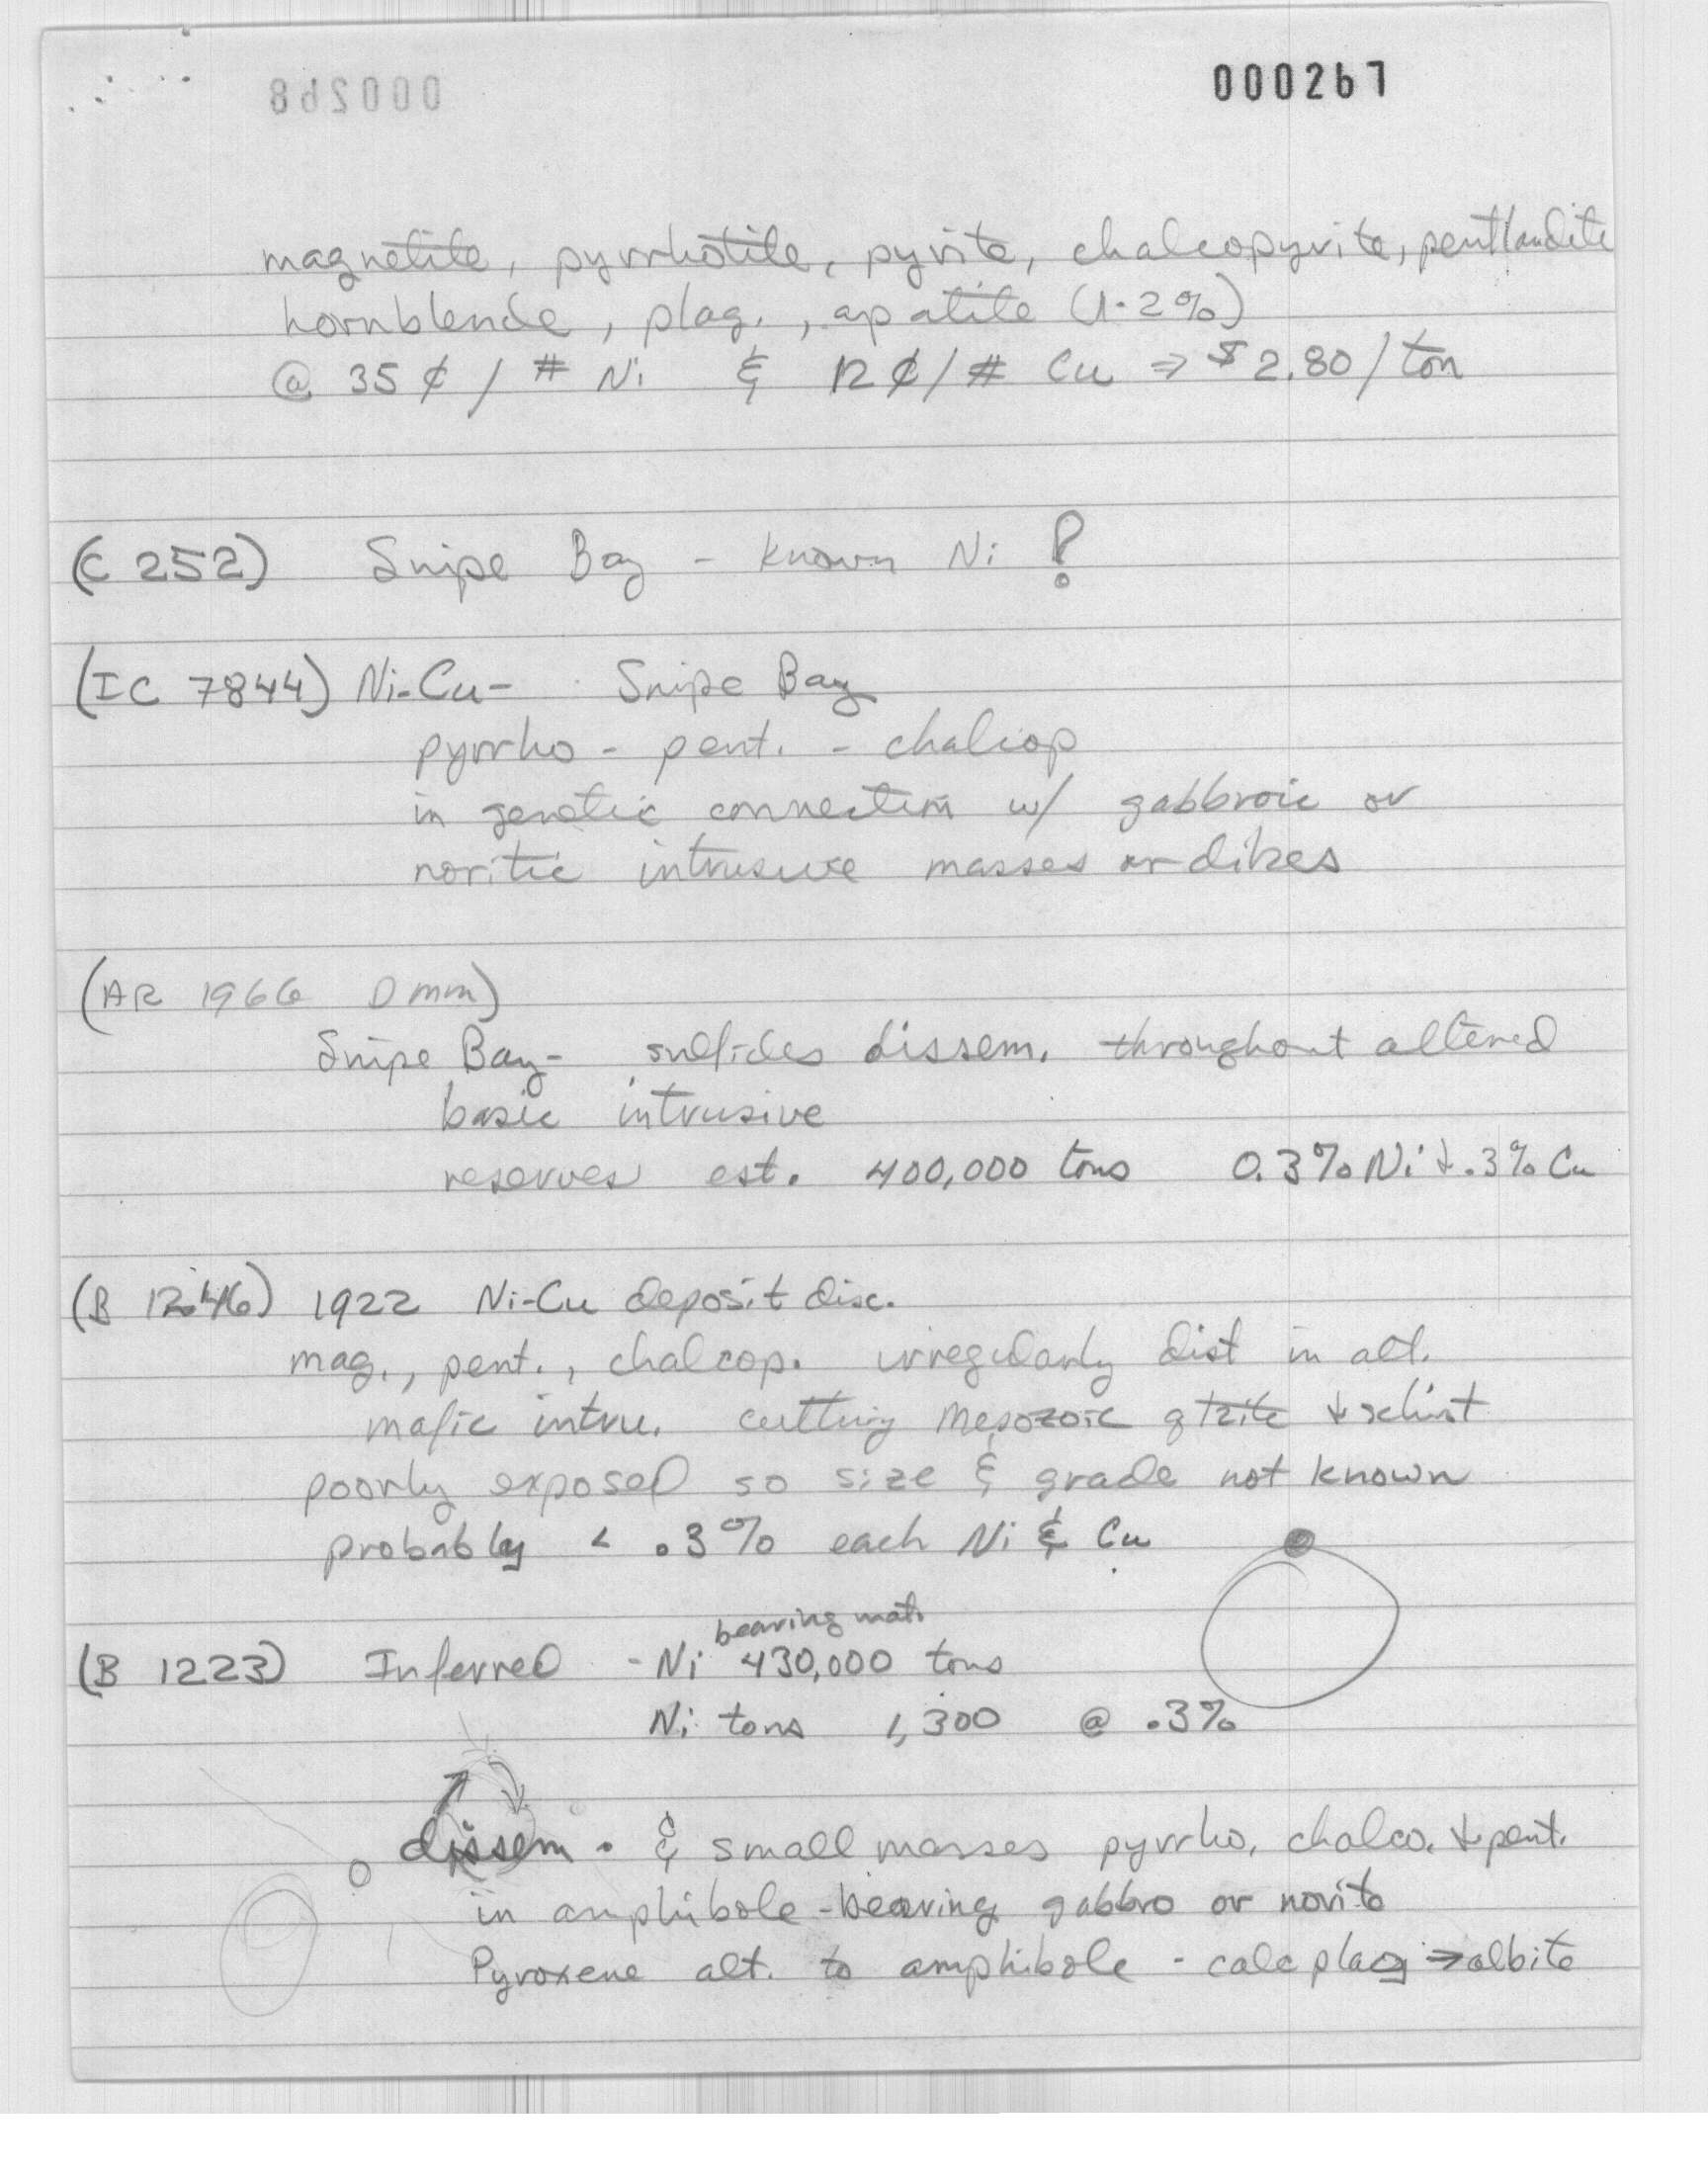 000267
magnetite, pyrrhotite, pyrite, chalcopyrite, pentlandite
hornblende, plag., apatite (1-2%)
@ 35 ¢ / # Ni & 12 ¢/ # Cu ⇒ $2.80/ton
(C 252) Snipe Bay - known Ni !
(IC 7844) Ni-Cu- Snipe Bay
pyrrho - pent. - chalcop
in genetic connection w/ gabbroic or
noritic intrusive masses or dikes
(AR 1966 Dmm)
Snipe Bay- sulfides dissem. throughout altered
basic intrusive
reserves est. 400,000 tons 0.3% Ni & .3% Cu
(B 1246) 1922 Ni-Cu deposit disc.
mag., pent., chalcop. irregularly dist in alt.
mafic intru. cutting Mesozoic qtzite & schist
poorly exposed so size & grade not known
probably < .3% each Ni & Cu
bearing mat.
(B 1223) Inferred - Ni 430,000 tons
Ni tons 1,300 @ .3%
dissem. & small masses pyrrho, chalco. & pent.
in amphibole-bearing gabbro or norite
Pyroxene alt. to amphibole - calc plag ⇒ albite